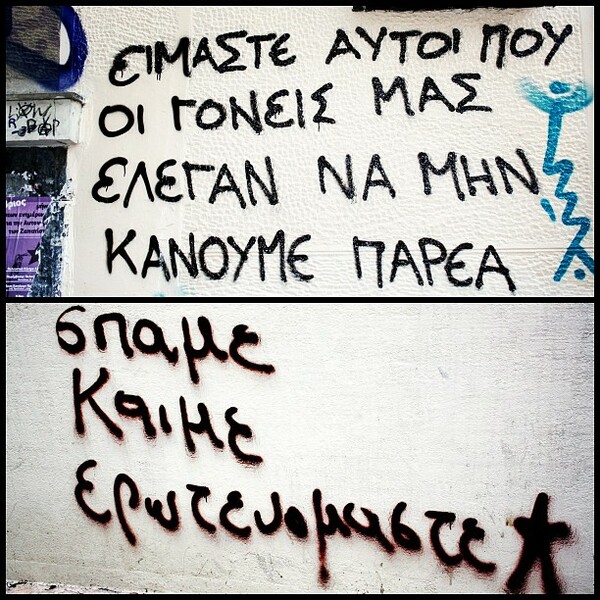 ΕΙΜΑΣΤΕ ΑΥΤΟΙ ΠΟΥ
ΟΙ ΓΟΝΕΙΣ ΜΑΣ
ΕΛΕΓΑΝ ΝΑ ΜΗΝ
ΚΑΝΟΥΜΕ ΠΑΡΕΑ
σπαμε
Καιμε
ερωτευομαστε